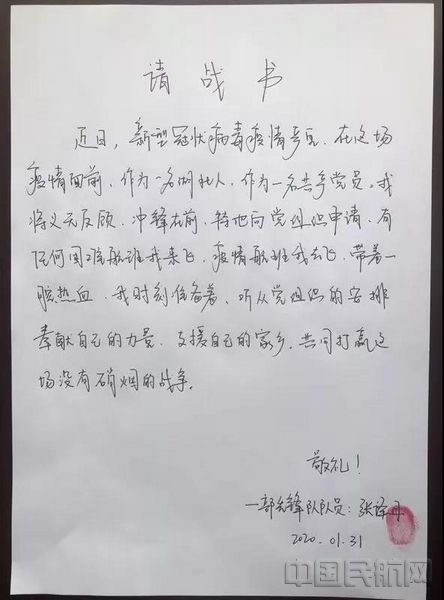 请战书
近日，新型冠状病毒疫情牵动，在这场
疫情面前，作为一名湖北人，作为一名共产党员，我
将义无反顾，冲锋在前，特地向党组织申请，有
任何困难航班我来飞，疫情航班我去飞，带着一
腔热血，我时刻准备着，听从党组织的安排
奉献自己的力量，支援自己的家乡，共同打赢这
场没有硝烟的战争。
敬礼！
一部先锋队队员：张
2020.01.31
中国民航网